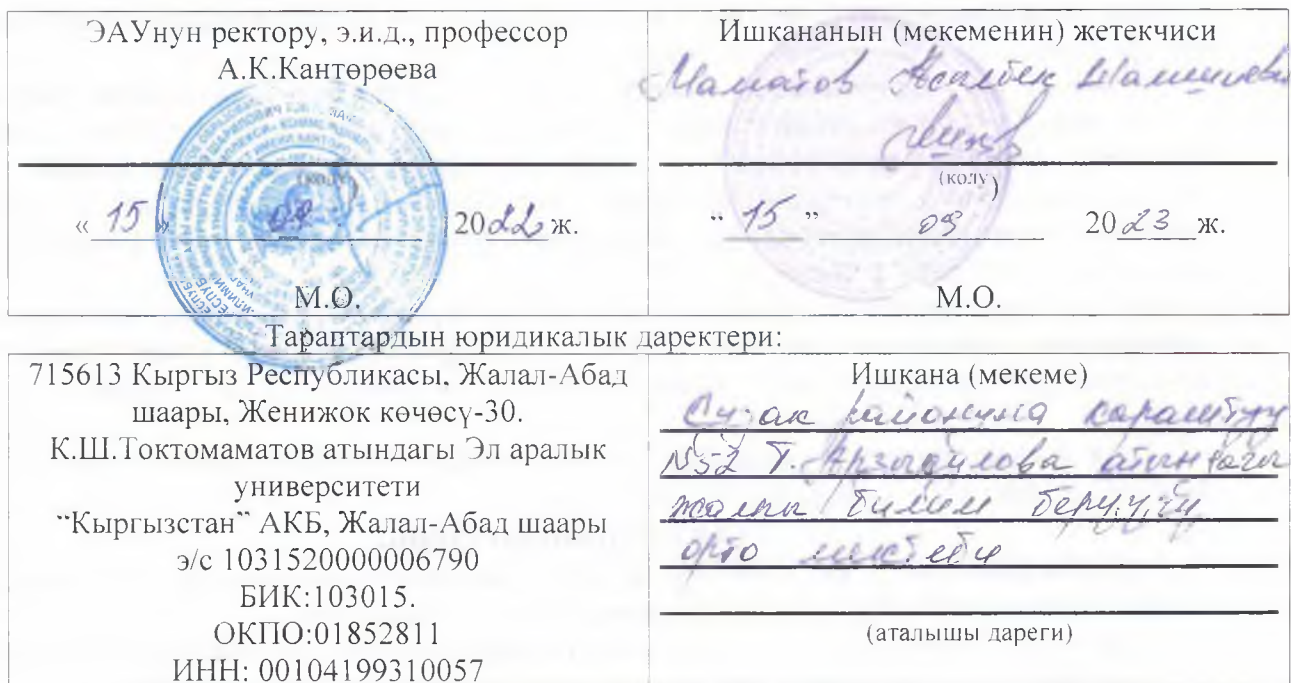 ЭАУнун ректору, э.и.д., профессор
А.К.Кантөрөева
(колу)
« 15 » 09 2022 ж.
М.О.
Ишкананын (мекеменин) жетекчиси
Маматов Асылбек
(колу)
“ 15 ” 09 2023 ж.
М.О.
Тараптардын юридикалык даректери:
715613 Кыргыз Республикасы, Жалал-Абад
шаары, Женижок көчөсү-30.
К.Ш.Токтомаматов атындагы Эл аралык
университети
“Кыргызстан” АКБ, Жалал-Абад шаары
э/с 1031520000006790
БИК:103015.
ОКПО:01852811
ИНН: 00104199310057
Ишкана (мекеме)
Сузак районуна караштуу
№52 Т. атындагы
жалпы билим берүүчү
орто мектеби
(аталышы дареги)